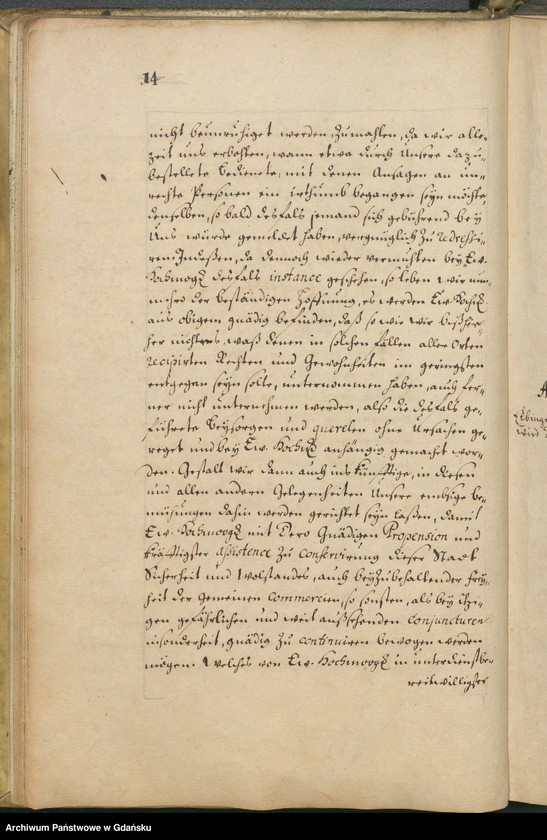 14
nicht beunruhiget werden, Zumahlen, da wir alle-
zeit uns erbohten, wann etwa durch Unsere dazu
bestellete Bediente, mit denen Ansagen an un-
rechte Personen ein irthumb begangen seyn möchte,
denselben, so bald desfals jemand sich gebührend bey
Uns würde gemeldet haben, vergnüglich zu redressi-
ren. Indeßen, da dennoch wieder vermuhten bey Ew.
Hochmog. desfals instance geschehen, so leben wir nun-
mehro der beständigen Hoffnung, es werden Ew.
aus obigem gnädig befinden, daß so wie wir bißhie-
her nichtes, waß denen in solchen fällen aller Orten
recipirten Rechten und Gewohnheiten im geringsten
entgegen seyn solte, unternommen haben, auch fer-
ner nicht unternehmen werden, also die desfals ge-
führete Beysorgen und querelen ohne Ursachen ge-
reget und bey Ew. anhängig gemacht wor-
den. Gestalt wir dann auch ins künfftige, in diesen
und allen andern Gelegenheiten Unsere embsige be-
mühungen dahin werden gerichtet seyn laßen, damit
Ew. Hochmoog. mit Dero Gnädigen Propension und
kräfftigster assistence zu conservirung dieser Stadt
Sicherheit und Wolstandes, auch beyzubehaltender frey-
heit der Gemeinen commercien, so sonsten, als bey itzi-
gen gefährlichen und weit außsehenden conjuncturen
insonderheit, gnädig zu continuiren bewogen werden
mögen. Welches von Ew. Hochmoog. in unterdienstbe-
reitwilligster
Elbing
wird
Archiwum Państwowe w Gdańsku